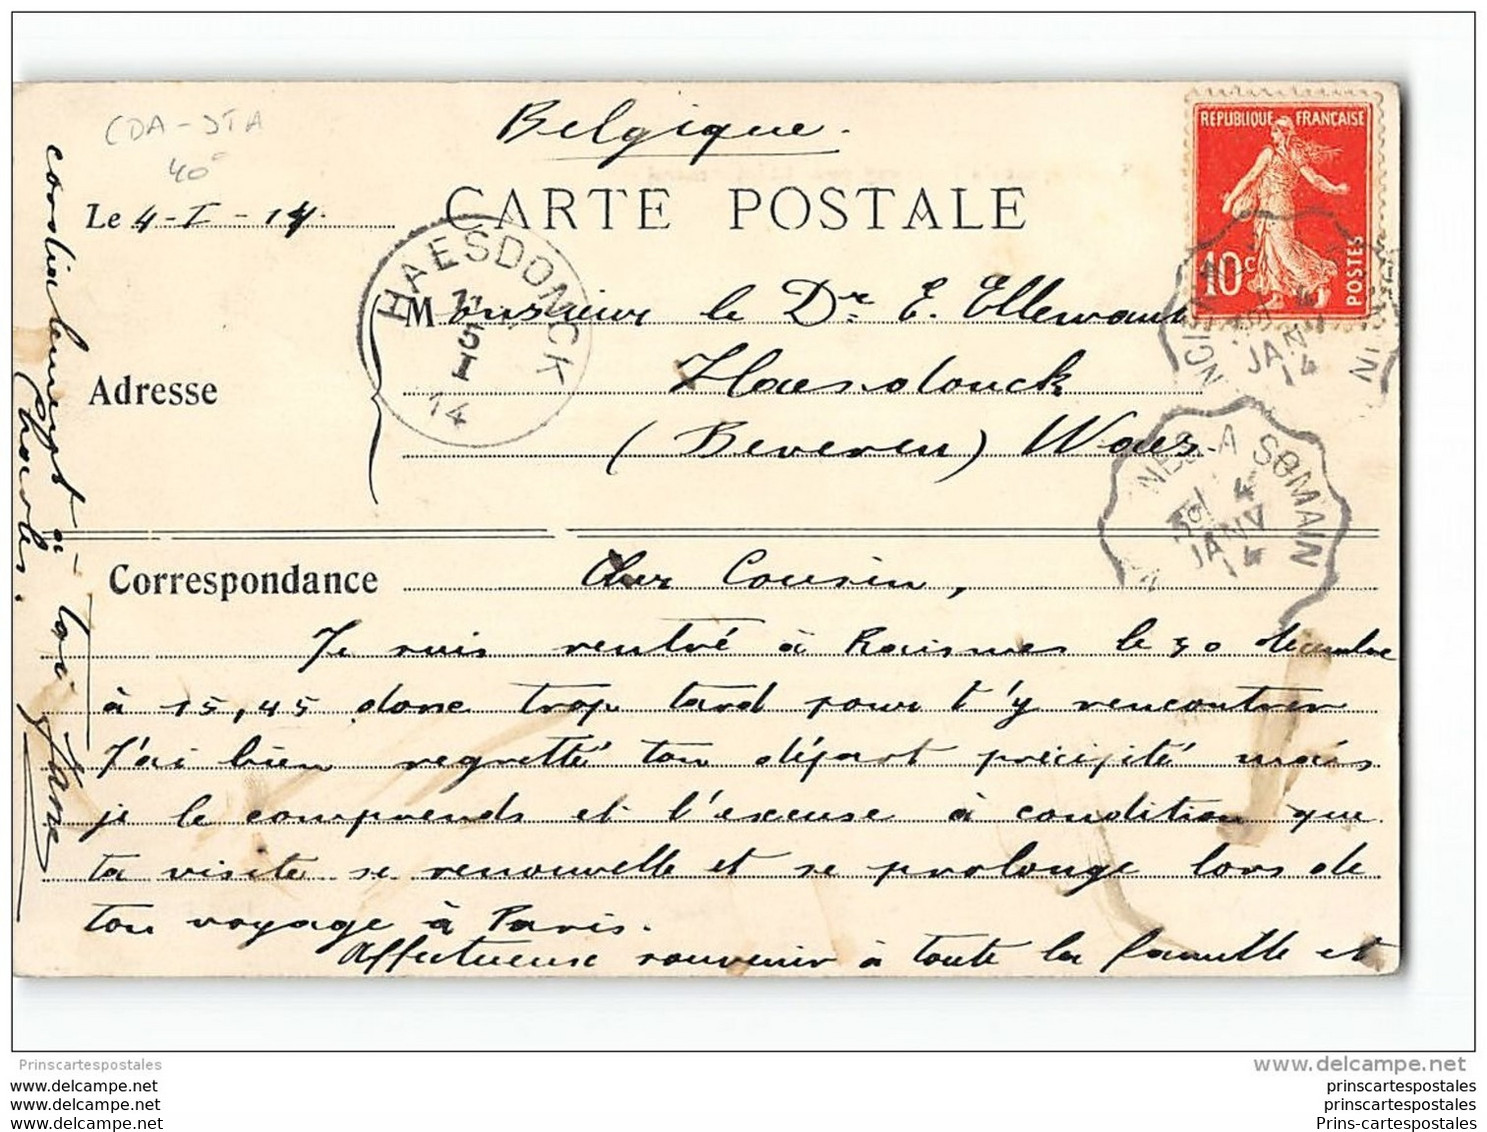 CDA-STA
40°
Belgique.
RÉPUBLIQUE FRANÇAISE
10c
POSTES
Le 4-I-14.
CARTE POSTALE
HAESDONCK
5
I
14
Monsieur le Dr E. Ellewaut
Adresse
Haesdonck
(Beveren) Waes
JANV
14
NES-A SOMAIN
3e 4
JANV
14
Correspondance
Cher Cousin,
Je suis rentré à Raismes le 30 décembre
à 15,45 donc trop tard pour t'y rencontrer
J'ai bien regretté ton départ précipité mais
je le comprends et l'excuse à condition que
ta visite se renouvelle et se prolonge lors de
ton voyage à Paris.
Affectueuse souvenir à toute la famille et
cordialement à toi
Charles.
Prinscartespostales
www.delcampe.net
www.delcampe.net
www.delcampe.net
www.delcampe.net
prinscartespostales
prinscartespostales
Prins-cartespostales